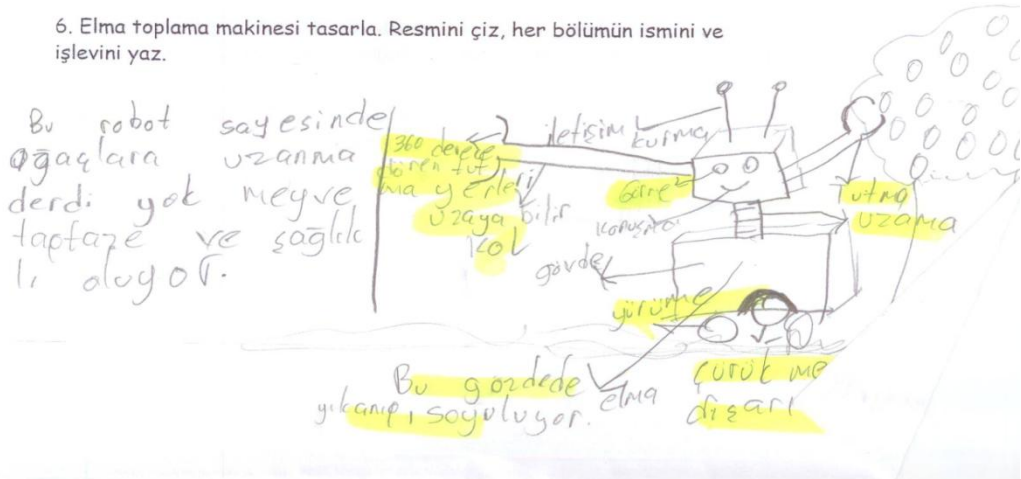 6. Elma toplama makinesi tasarla. Resmini çiz, her bölümün ismini ve
işlevini yaz.
Bu robot sayesinde
ağaçlara uzanma
derdi yok meyve
taptaze ve sağlık
lı oluyor.
360 derece
dönen tut
ma yerleri
uzaya bilir
kol
iletişim kurma
Görme
konuşma
gövde
yürüme
tutma
uzama
Bu gözdede elma
yıkanıp, soyuluyor.
çürük me
dışarı